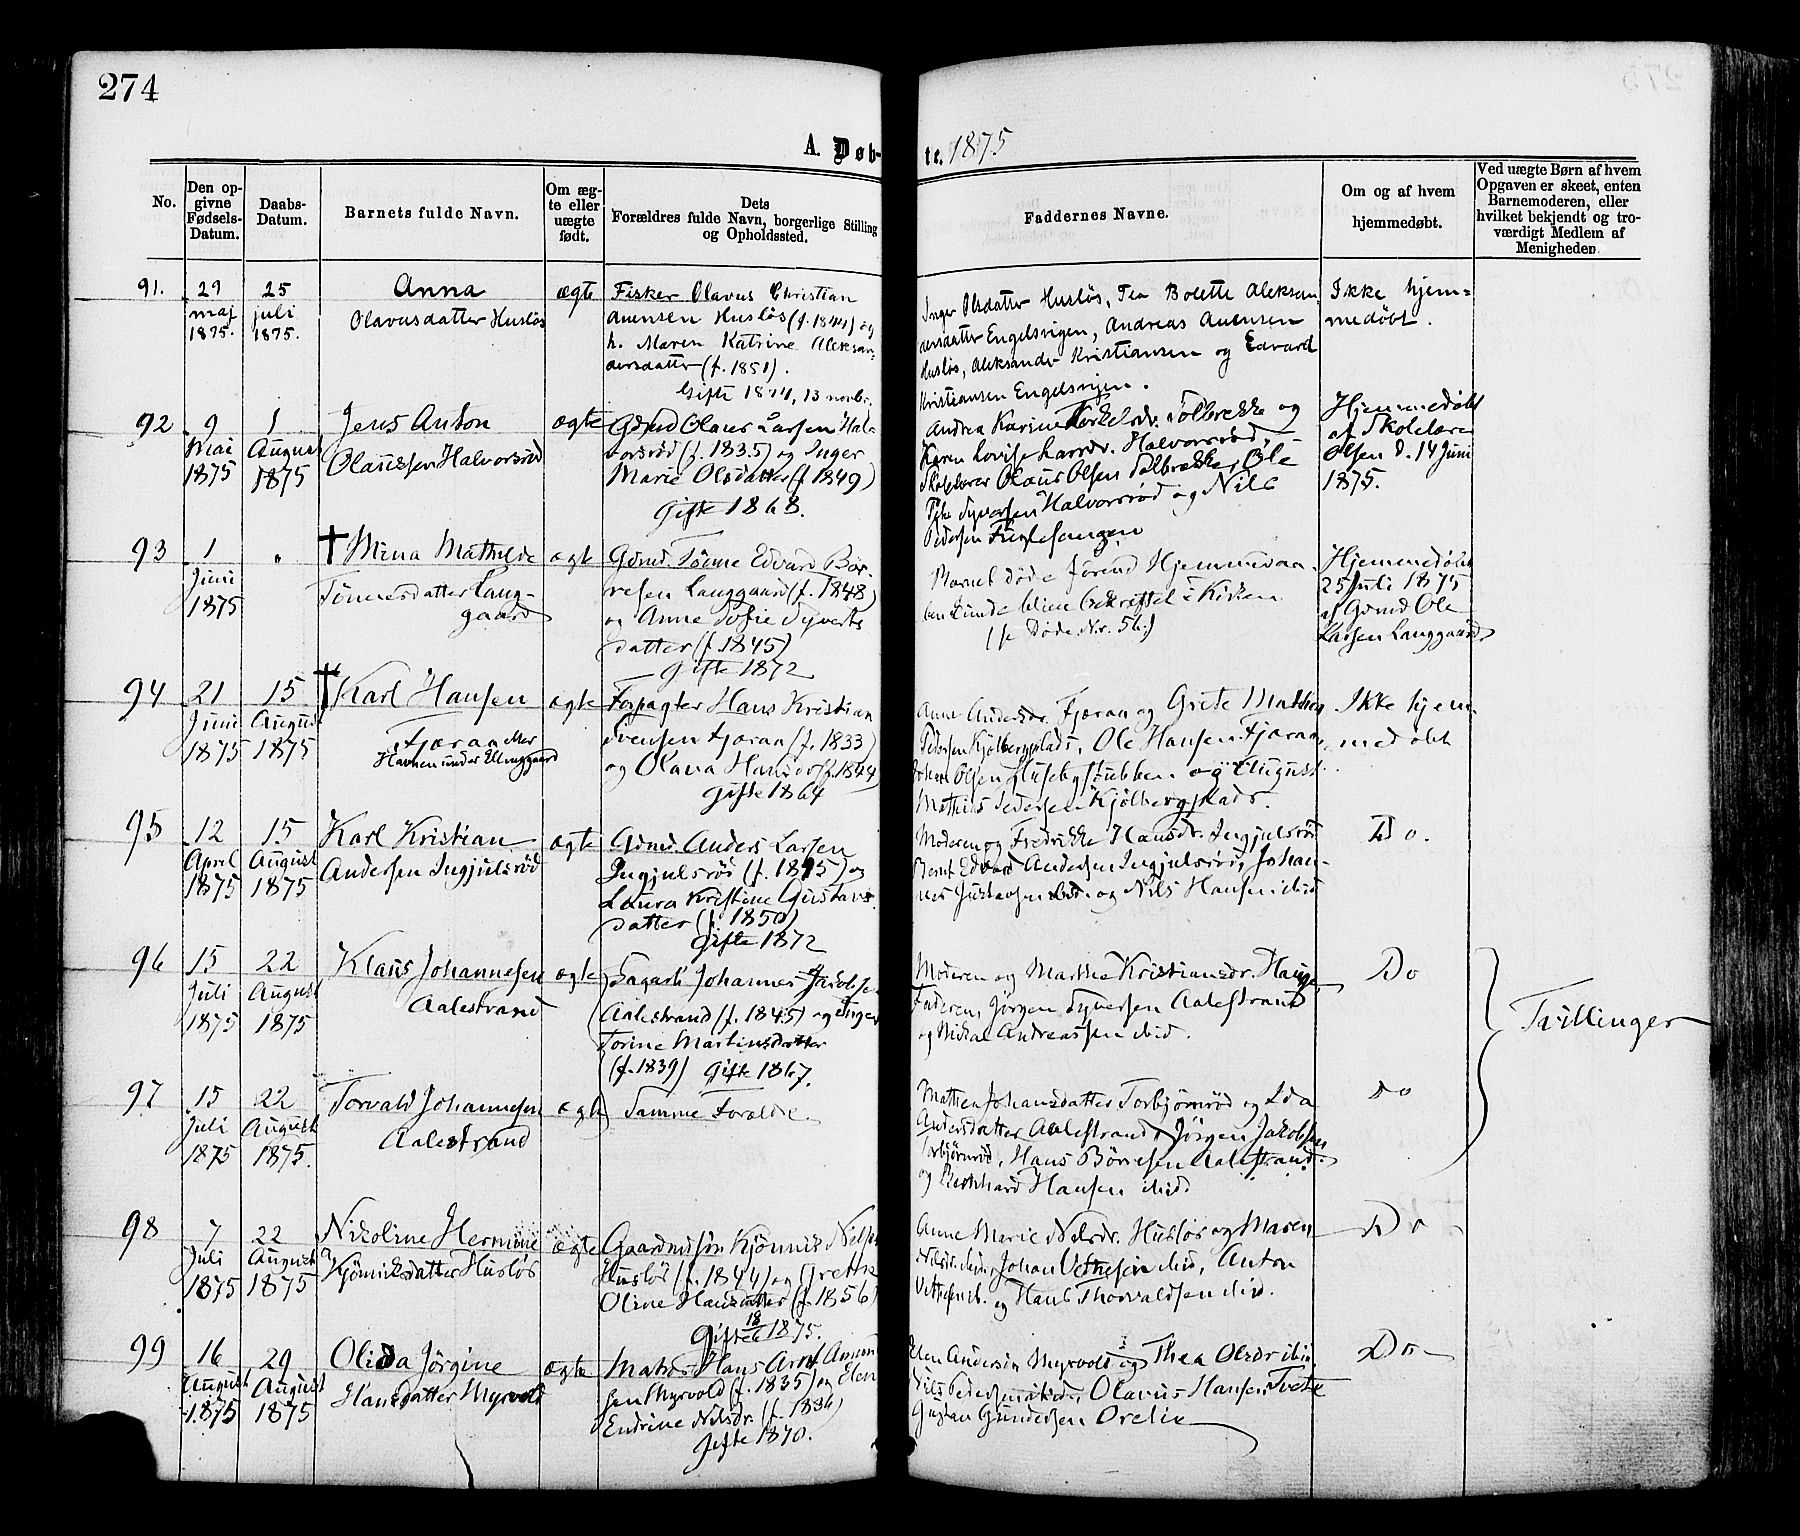 274
A. Døb-
te. 1875
No.
Den op-
givne
Fødsels-
Datum.
Daabs-
Datum.
Barnets fulde Navn.
Om æg-
te eller
uægte
født.
Dets
Forældres fulde Navn, borgerlige Stilling
og Opholdssted.
Faddernes Navne.
Om og af hvem
hjemmedøbt.
Ved uægte Børn af hvem
Opgaven er skeet, enten
Barnemoderen, eller
hvilket bekjendt og tro-
værdigt Medlem af
Menigheden.
91.
29
maj
1875.
25
juli
1875.
Anna
Olavusdatter Husløs
ægte
Fisker Olavus Christian
Husløs (f. 1844) og
h. Maren Katrine Aleksan-
dersdatter (f. 1851).
Gifte 1874, 13 novbr.
Inger Olsdatter Husløs, Tea Bolette Aleksan
dersdatter Engelsvigen, Andreas
Husløs, Aleksander Kristiansen og Edvard
Kristiansen Engelsvigen.
Ikke hjem-
medøbt.
92
9
Mai
1875
1
August
1875
Jens Anton
Olaussen Halvorsrød
ægte
Gdmd Olaus Larsen Hal-
vorsrød (f. 1835) og Inger
Marie Olsdatter (f. 1849)
Gifte 1868.
Andrea Karine Torkelsdr. Solbrække og
Karen Lovise Larsdr. Halvorsrød,
Skolelærer Olaus Olsen Solbrække, Ole
Syversen Halvorsrød og Nils
Pedersen Fuglesangen
Hjemmedøbt
af Skolelærer
Olsen d. 14 Juni
1875.
93
1
Juni
1875
"
† Mina Mathilde
Tönnesdatter Lang-
gaard
ægte
Gdmd. Tönne Edvard Bör-
resen Langgaard (f. 1848)
og Anne Sofie Syverts
datter (f. 1845)
Gifte 1872
Barnet døde førend Hjemmedaa-
ben kunde blive bekræftet i Kirken
(se Døde Nr. 56.)
Hjemmedøbt
25 Juli 1875
af Gdmd Ole
Larsen Langgaard
94
21
Juni
1875
15
August
1875
† Karl Hansen
Fjæran eller
Havnen under Elinggaard
ægte
Forpagter Hans Kristian
Svensen Fjæran (f. 1833)
og Olava Hansdr (f. 1844)
gifte 1864
Anne Andersdr. Fjæran og Grete Mathea
Pedersen Kjölbergplads, Ole Hansen Fjæran,
Johan Olsen Husebystubben og August
Mathias Pedersen Kjölbergplads.
Ikke hjem-
medøbt
95
12
April
1875
15
August
1875
Karl Kristian
Andersen Ingjulsröd
ægte
Gdmd. Anders Larsen
Ingjulsröd (f. 1845) og
Laura Kristine Gustavs-
datter (f. 1850)
Gifte 1872
Moderen og Fredrikke Hansdr. Ingjulsröd
Bernt Edvard Andersen Ingjulsröd, Johan-
nes Gustavsen ibid. og Nils Hansen ibid
Do.
96
15
Juli
1875
22
August
1875
Klaus Johannesen
Aalestrand
ægte
Sagarb. Johannes Jakobsen
Aalestrand (f. 1845) og Inger
Torine Martinsdatter
(f. 1839) Gifte 1867.
Moderen og Marthe Kristiansdr. Hauge
Faderen, Jørgen Syversen Aalestrand
og Mikal Andreassen ibid.
Do
Tvillinger
97
15
Juli
1875
22
August
1875.
Torvald Johannesen
Aalestrand
ægte
Samme Forældre
Mathea Johansdatter Torbjørnrød og Ida
Andersdatter Aalestrand, Jørgen Jakobsen
Torbjørnrød, Hans Börresen Aalestrand
og Bernhard Hansen ibid.
Do
98
7
Juli
1875
22
August
1875
Nikoline Hermine
Kjönniksdatter Husløs
ægte
Gaardmdsön Kjönnik Nilsen
Husløs (f. 1844) og Grethe
Oline Hansdatter (f. 1856)
Gifte 18/6 1875.
Anne Marie Nilsdr. Husløs og Maren
Nilsdr. ibid., Johan Vettesen ibid, Anton
Vettesen ib. og Hans Thorvaldsen ibid.
Do
99
16
August
1875
29
August
1875
Olida Jörgine
Hansdatter Myrvold
ægte
Matros Hans Arnt Amund
sen Myrvold (f. 1835) og Elen
Endrine Nilsdr. (f. 1834)
Gifte 1870.
Elen Andersen Myrvold og Thea Olsdr ibid.
Nils Pedersen, Olavus Hansen Tvete
Gustav Gundersen Örelie
Do